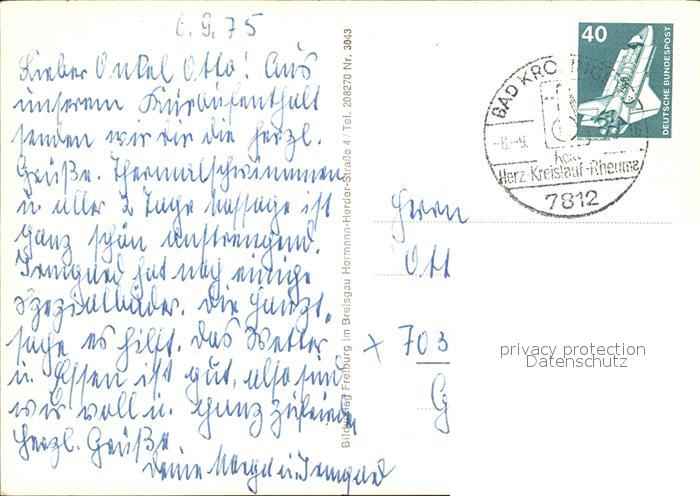 6.9.75
Lieber Onkel Otto! Aus
unserem Kuraufenthalt
senden wir dir die herzl.
Grüße. Thermalschwimmen
u. aller 2 Tage Massage ist
ganz schön anstrengend.
Irmgard hat noch einige
Spezialbäder. Die Haupt-
sache es hilft. Das Wetter
u. Essen ist gut, also sind
wir voll u. ganz zufrieden
Herzl. Grüße
Deine Margd u. Irmgard
Bildverlag Freiburg im Breisgau Hermann-Herder-Straße 4 / Tel. 208270 Nr. 3043
BAD KROZINGEN
-6.-9.
Herz-Kreislauf-Rheuma
7812
40
DEUTSCHE BUNDESPOST
Herrn
Ott
x 703
G
privacy protection
Datenschutz